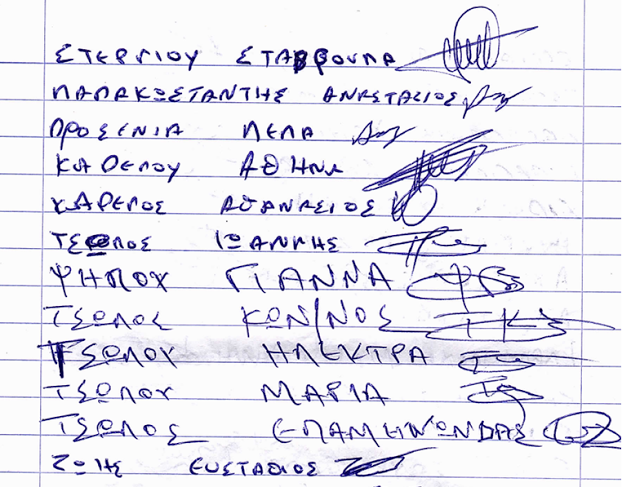 ΣΤΕΡΓΙΟΥ ΣΤΑΒΡΟΥΛΑ
ΠΑΠΑΚΩΣΤΑΝΤΗΣ ΑΝΑΣΤΑΣΙΟΣ
ΠΡΟΞΕΝΙΑ ΛΕΛΑ
ΚΑΡΕΛΟΥ ΑΘΗΝΑ
ΚΑΡΕΛΟΣ ΑΘΑΝΑΣΙΟΣ
ΤΣΩΛΟΣ ΙΩΑΝΝΗΣ
ΨΗΛΟΥ ΓΙΑΝΝΑ
ΤΣΩΛΟΣ ΚΩΝ/ΝΟΣ
ΤΣΩΛΟΥ ΗΛΕΚΤΡΑ
ΤΣΩΛΟΥ ΜΑΡΙΑ
ΤΣΩΛΟΣ ΕΠΑΜΕΙΝΩΝΔΑΣ
ΖΩΗΣ ΕΥΣΤΑΘΙΟΣ